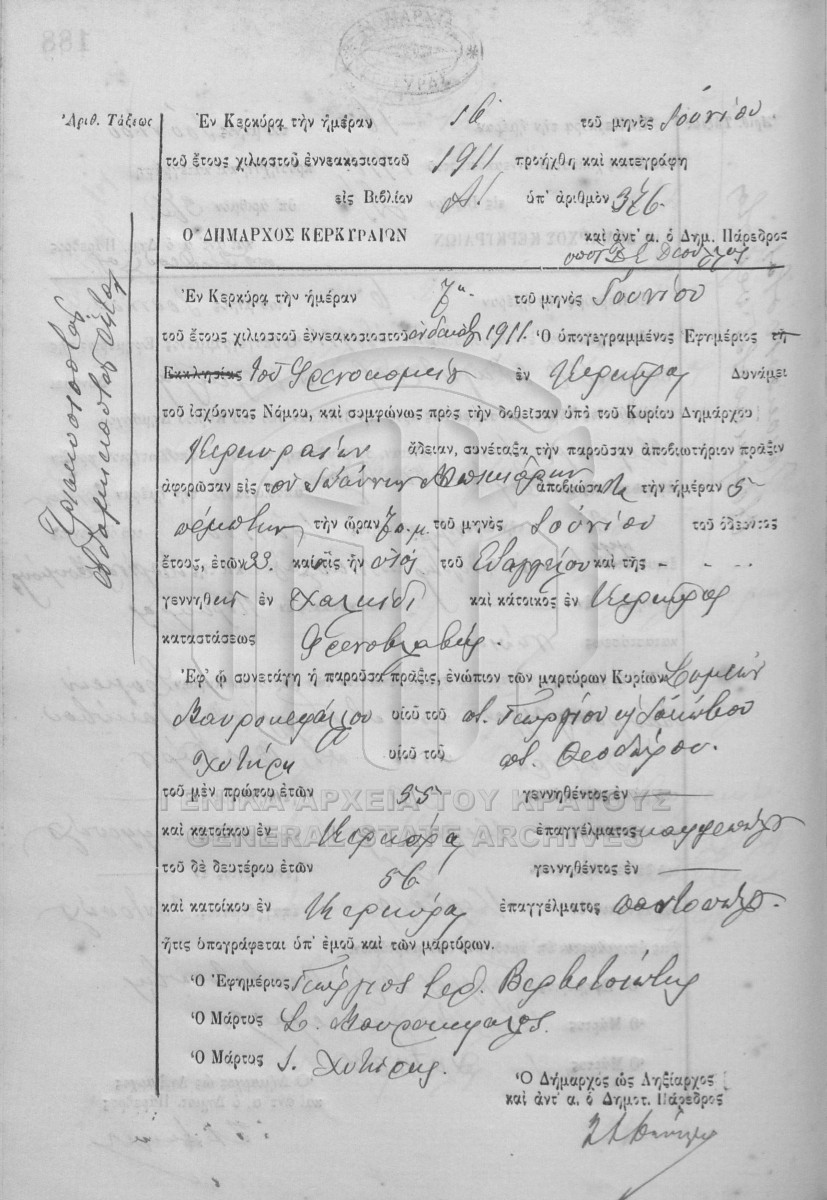 188
Ἀριθ. Τάξεως
Ἐν Κερκύρᾳ τὴν ἡμέραν 16 τοῦ μηνὸς Ἰουνίου
τοῦ ἔτους χιλιοστοῦ ἐννεακοσιοστοῦ 1911 προήχθη καὶ κατεγράφη
εἰς Βιβλίον Α! ὑπ' ἀριθμὸν 376.
Ὁ ΔΗΜΑΡΧΟΣ ΚΕΡΚΥΡΑΙΩΝ καὶ ἀντ' α. ὁ Δημ. Πάρεδρος
Ἐν Κερκύρᾳ τὴν ἡμέραν τοῦ μηνὸς Ἰουνίου
τοῦ ἔτους χιλιοστοῦ ἐννεακοσιοστοῦ ἑνδεκάτου 1911. Ὁ ὑπογεγραμμένος Ἐφημέριος τῆς
Ἐκκλησίας τοῦ Φρενοκομείου ἐν Κερκύρᾳ Δυνάμει
τοῦ ἰσχύοντος Νόμου, καὶ συμφώνως πρὸς τὴν δοθεῖσαν ὑπὸ τοῦ Κυρίου Δημάρχου
Κερκυραίων ἄδειαν, συνέταξα τὴν παροῦσαν ἀποβιωτήριον πρᾶξιν
ἀφορῶσαν εἰς τὸν Ἰωάννην ἀποβιώσαντα τὴν ἡμέραν 5
πέμπτην τὴν ὥραν 7 π.μ. τοῦ μηνὸς Ἰουνίου τοῦ ὁδεύοντος
ἔτους, ἐτῶν 33. καὶ τις ἦν υἱὸς τοῦ Εὐαγγέλου καὶ τῆς - - - -
γεννηθεὶς ἐν Χαλκίδι καὶ κάτοικος ἐν Κερκύρᾳ
καταστάσεως Φρενοβλαβής.
Ἐφ' ᾧ συνετάγη ἡ παροῦσα πρᾶξις, ἐνώπιον τῶν μαρτύρων Κυρίων
Μαυροκεφάλου υἱοῦ τοῦ ποτ. Γεωργίου
Χυτήρη υἱοῦ τοῦ ποτ. Θεοδώρου.
τοῦ μὲν πρώτου ἐτῶν 55 γεννηθέντος ἐν
καὶ κατοίκου ἐν Κερκύρᾳ ἐπαγγέλματος καφεπώλου
τοῦ δὲ δευτέρου ἐτῶν 56 γεννηθέντος ἐν
καὶ κατοίκου ἐν Κερκύρᾳ ἐπαγγέλματος παντοπώλου.
ἥτις ὑπογράφεται ὑπ' ἐμοῦ καὶ τῶν μαρτύρων.
Ὁ Ἐφημέριος Γεώργιος Ἱερ. Βερβιτσιώτης
Ὁ Μάρτυς Σ. Μαυροκέφαλος.
Ὁ Μάρτυς Ι. Χυτήρης.
Ὁ Δήμαρχος ὡς Ληξίαρχος
καὶ ἀντ' α. ὁ Δημοτ. Πάρεδρος
ΓΕΝΙΚΑ ΑΡΧΕΙΑ ΤΟΥ ΚΡΑΤΟΥΣ
GENERAL STATE ARCHIVES